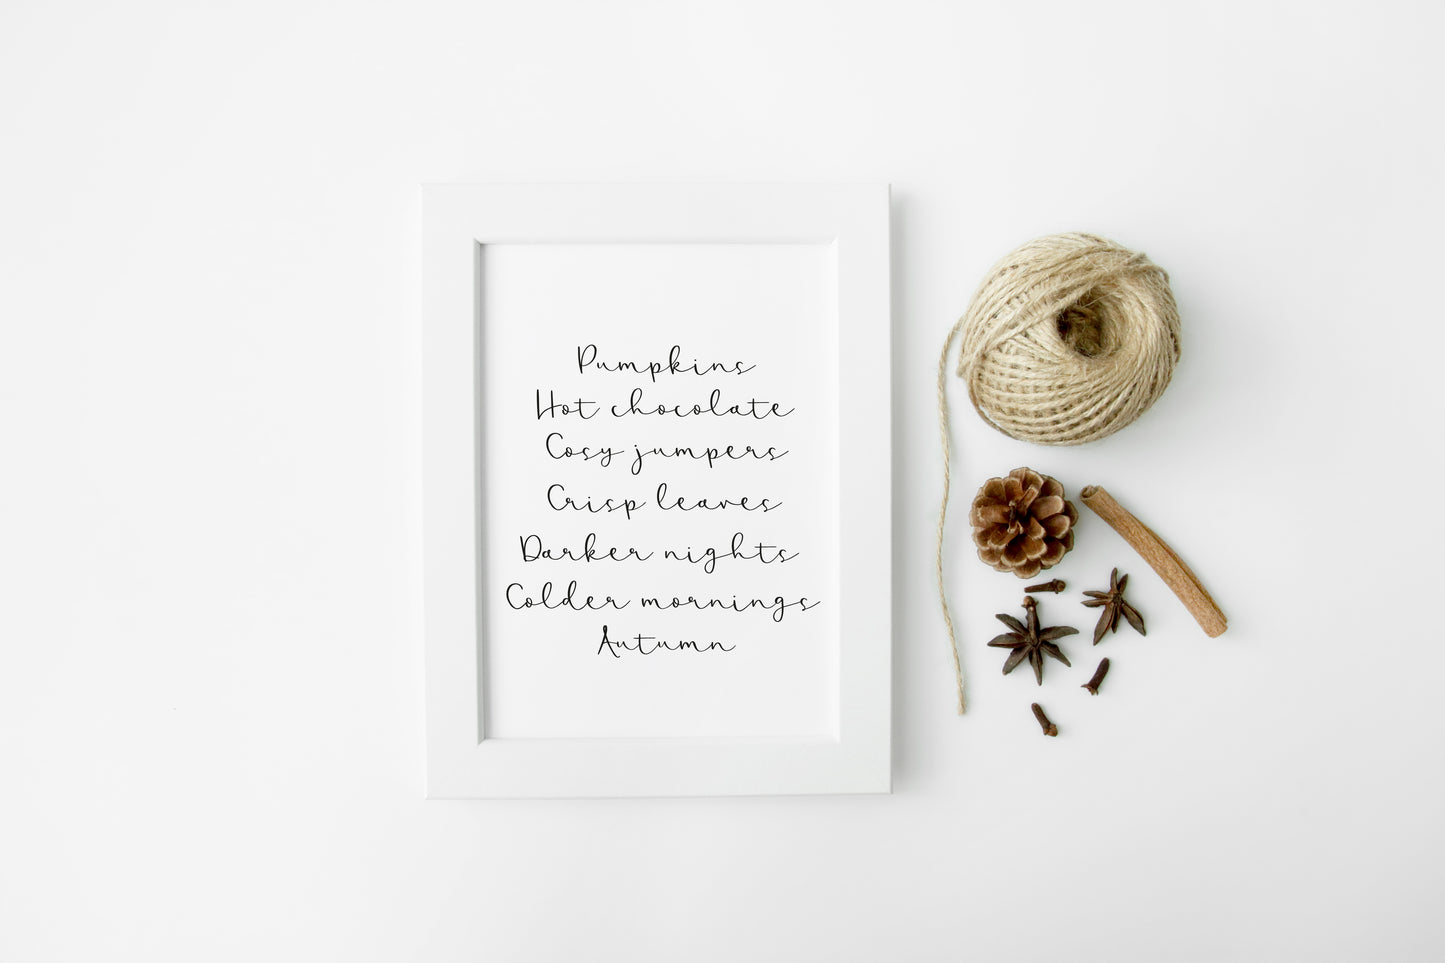 Pumpkins
Hot chocolate
Cosy jumpers
Crisp leaves
Darker nights
Colder mornings
Autumn